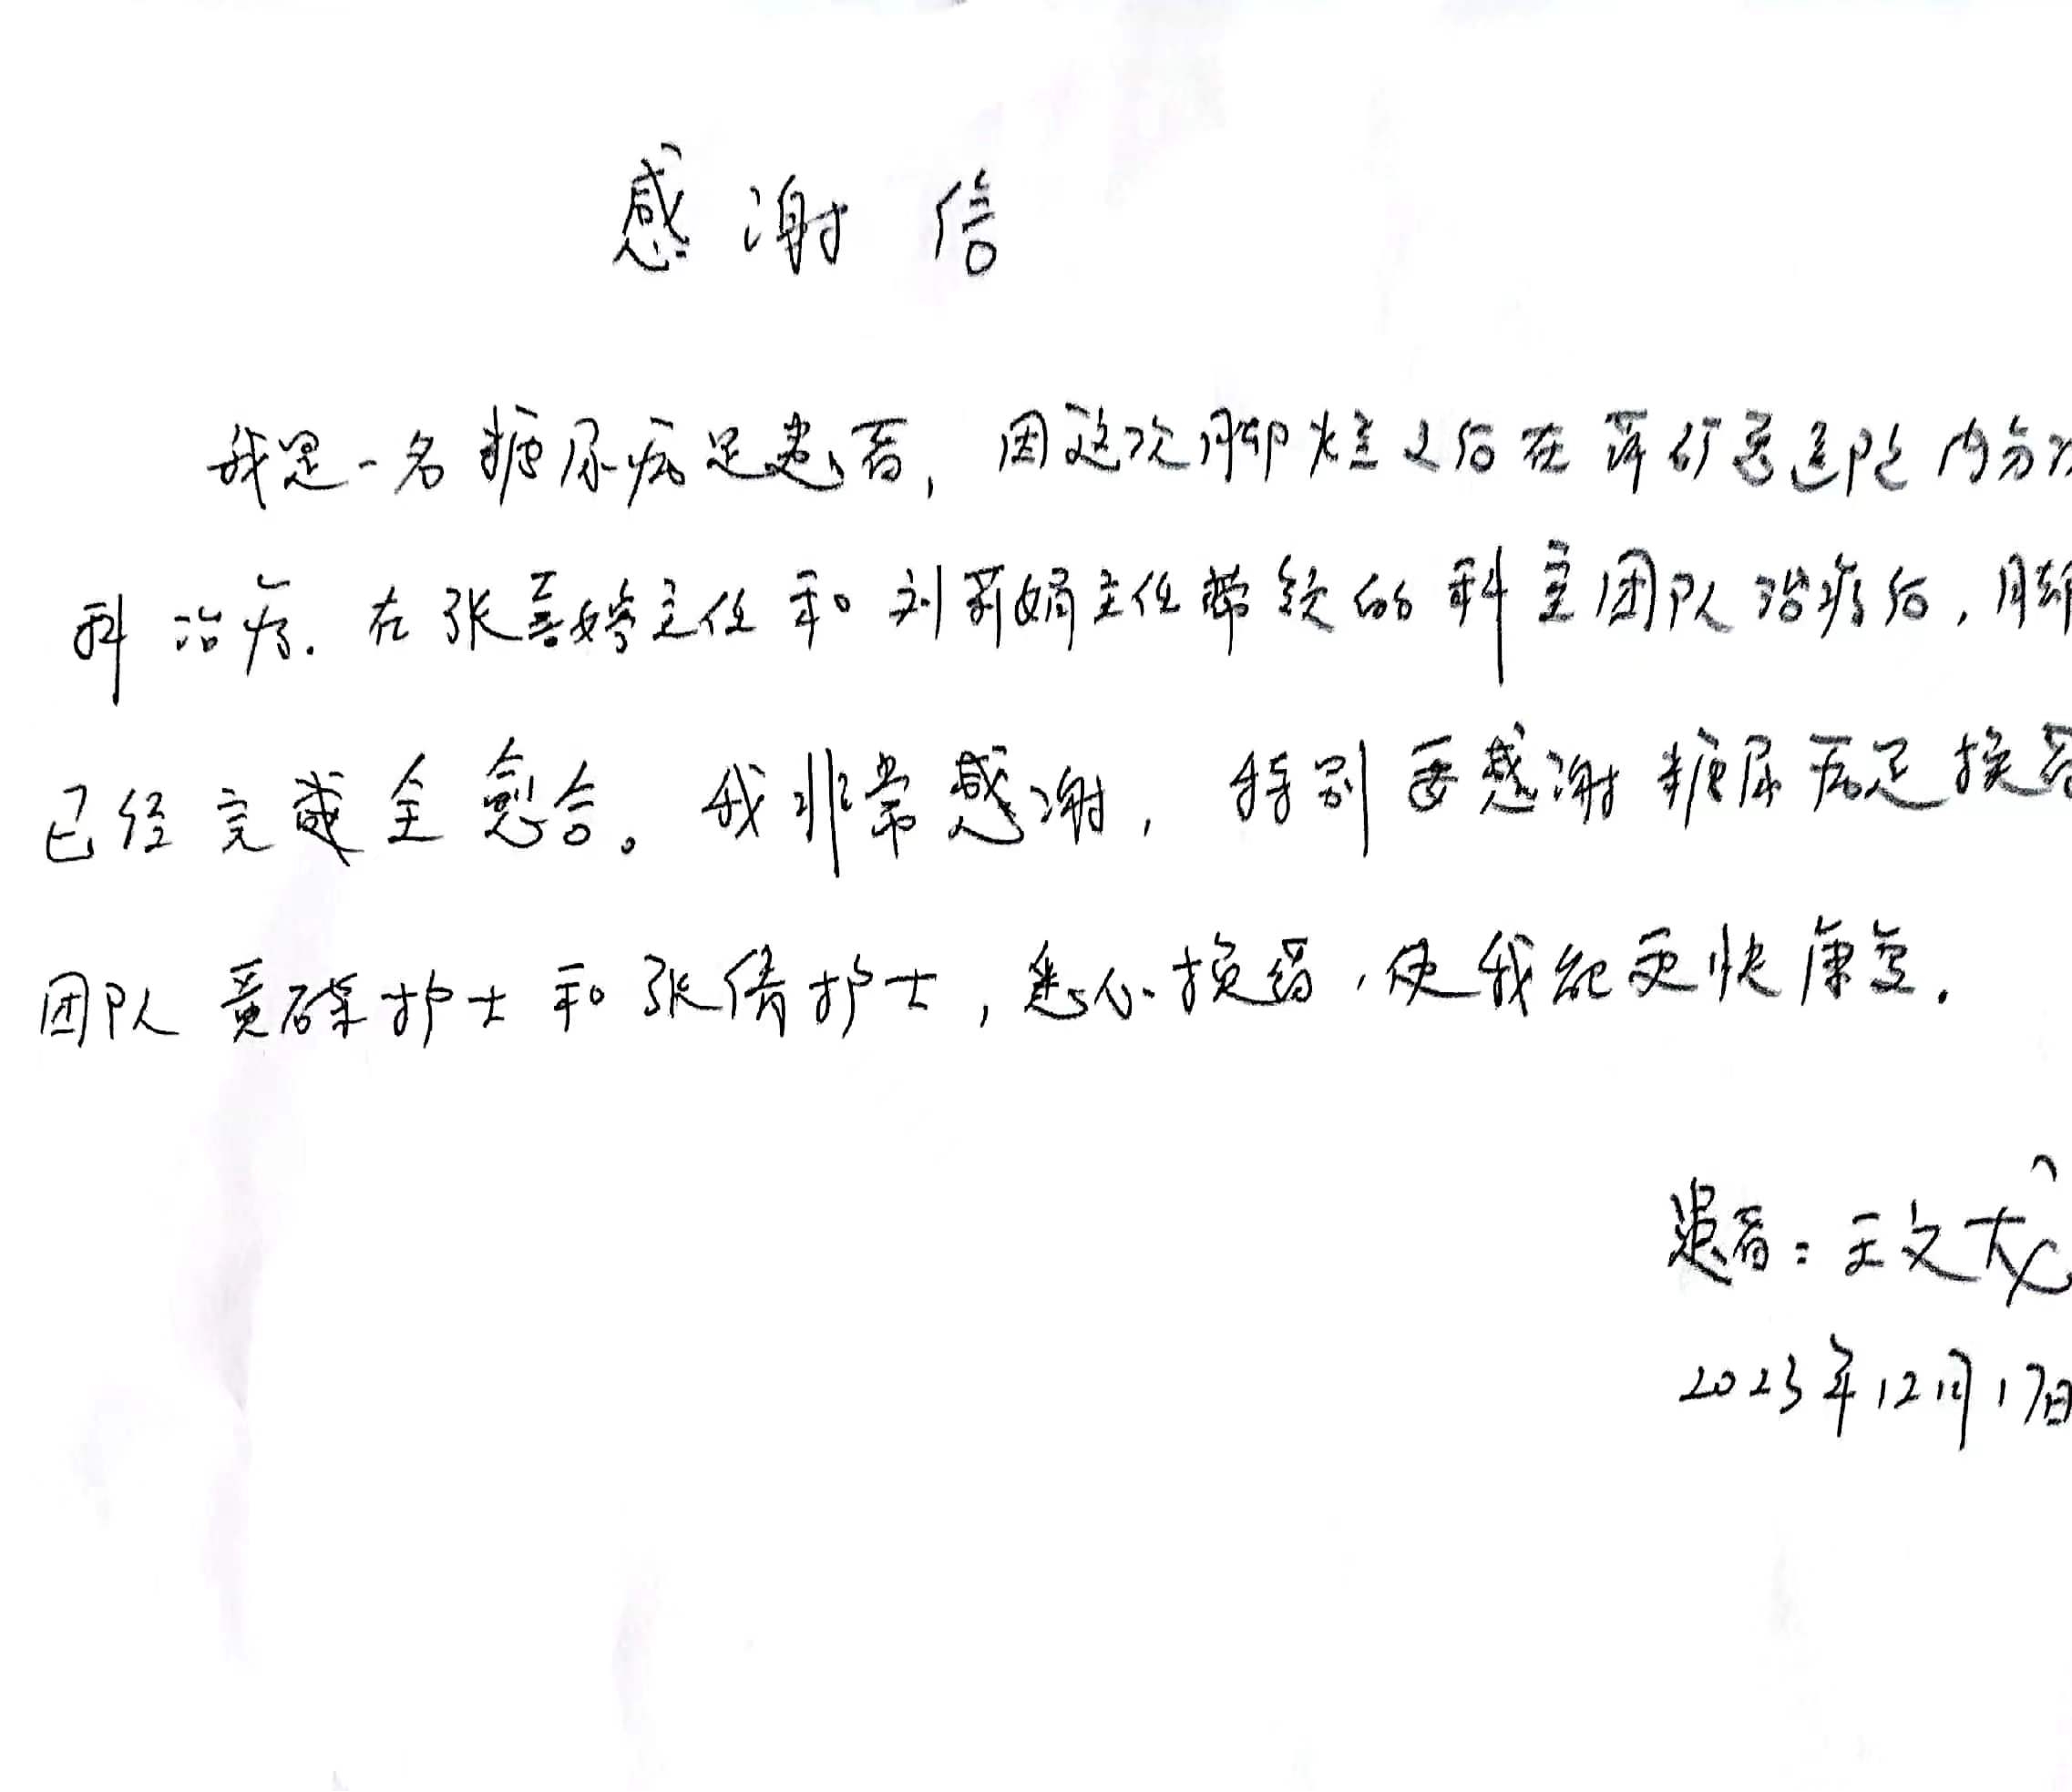 感谢信
我是一名糖尿病足患者，因这次脚烂之后在萍矿总医院内分
科治疗.在张喜婷主任和刘莉娟主任带领的科室团队治疗后，脚
已经完全愈合。我非常感谢，特别要感谢糖尿病足换药
团队 护士和张倩护士，悉心换药，使我能更快康复.
患者：王文
2023年12月17日